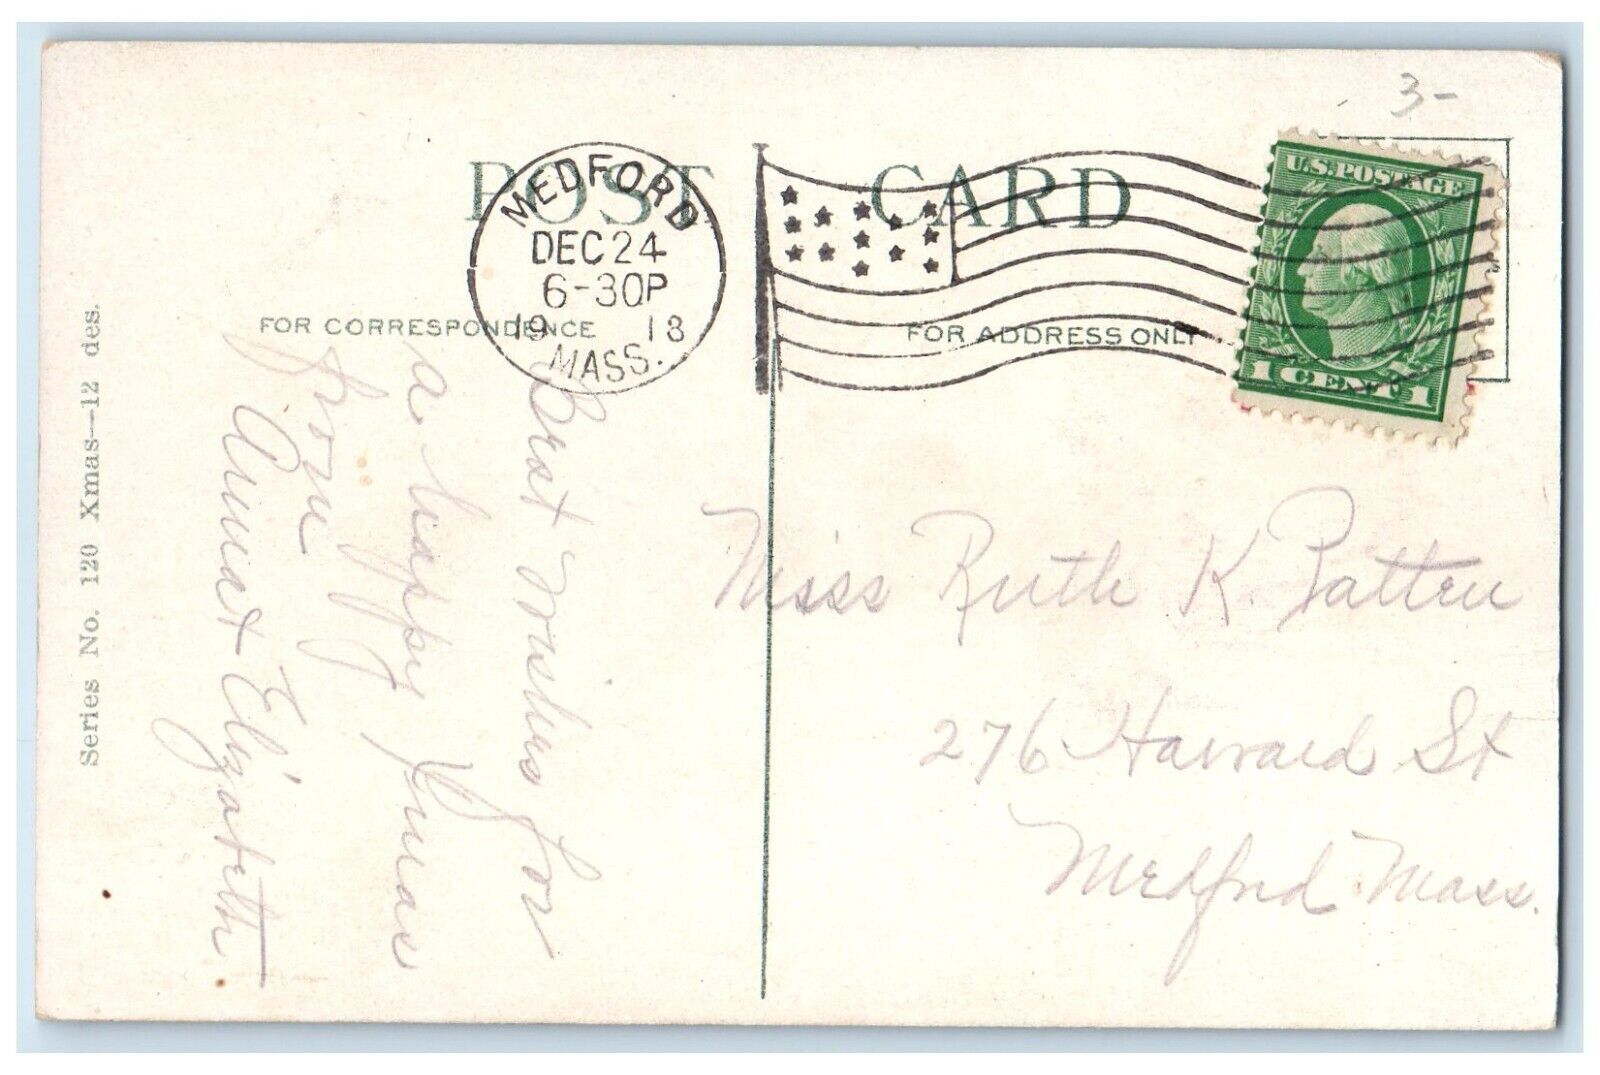 3-
POST CARD
U.S. POSTAGE
1 CENT 1
MEDFORD
DEC 24
6-30P
1913
MASS.
FOR CORRESPONDENCE
FOR ADDRESS ONLY
Series No. 120 Xmas--12 des.
Best wishes for
a happy Xmas
from
Anna & Elizabeth
Miss Ruth K. Patten
276 Harvard St
Medford Mass.